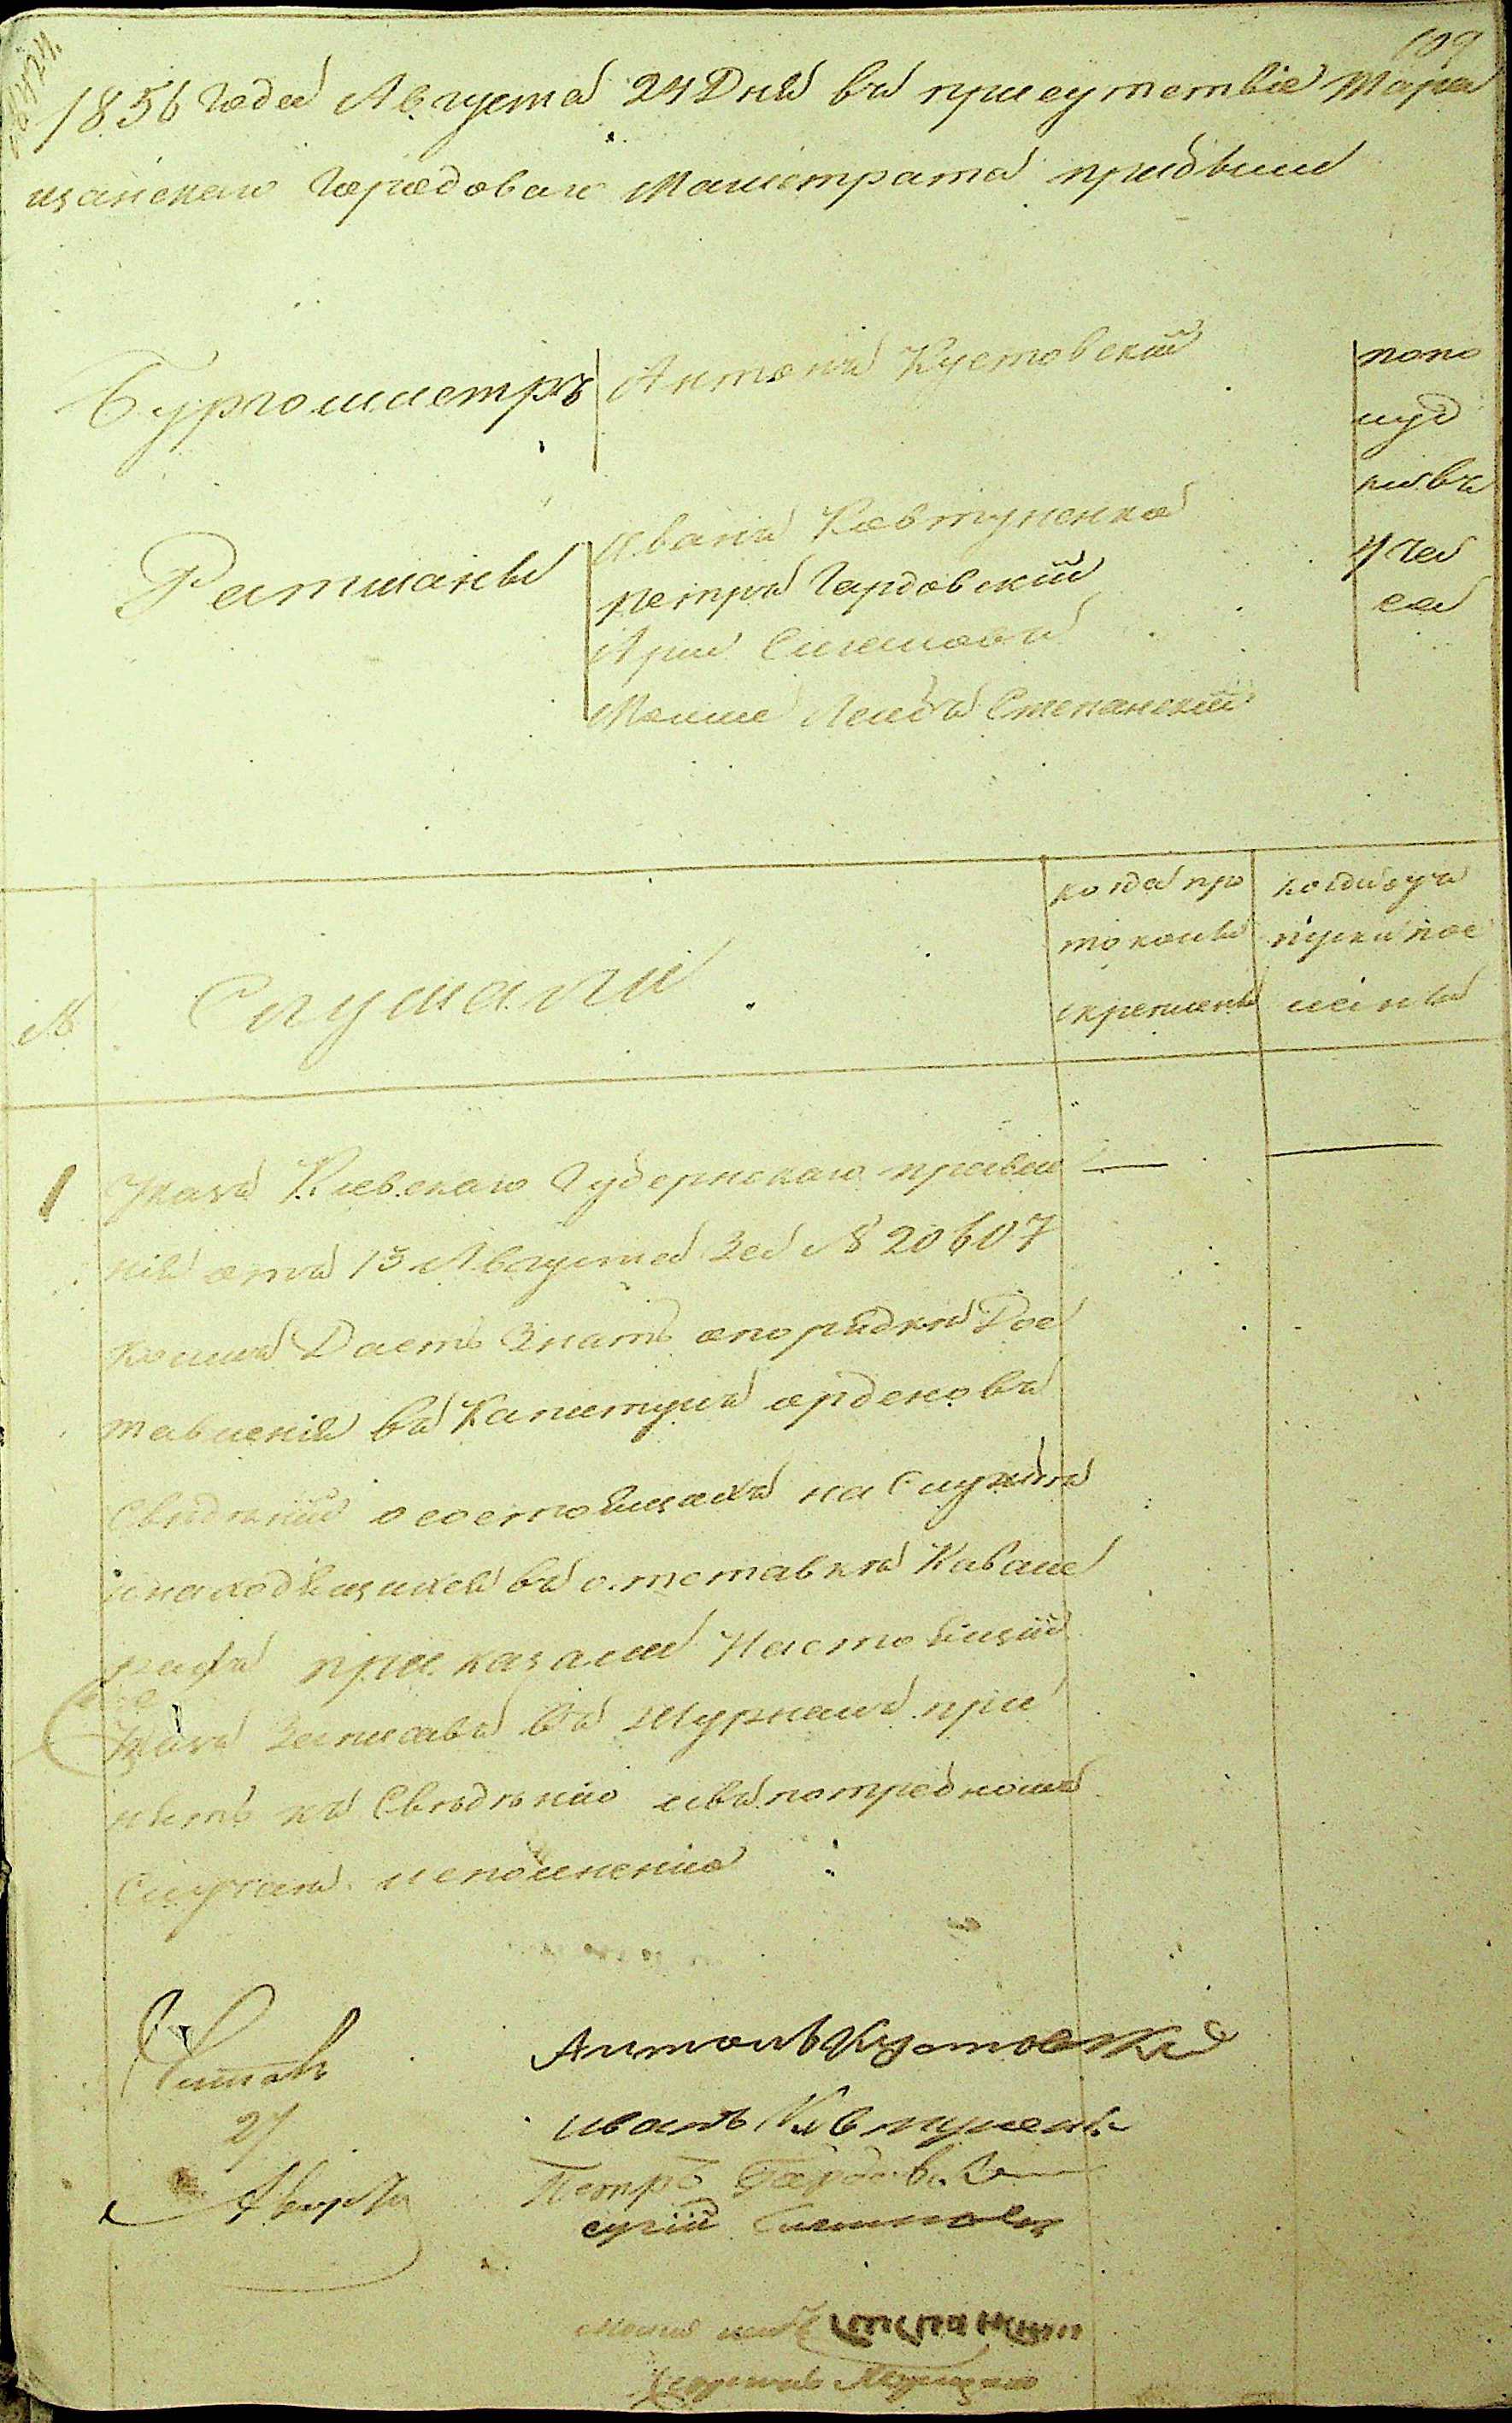 109
1856 года Августа 24 Дня въ присутствіе Тара
щанскаго Городоваго Магистрата прибыли
Бургомистръ
Антонъ Кустовскій
попо
луд
ни въ
часа
Ратманы
Иванъ Ковтуненко
Петръ Гардовскій
Мошко Лейбъ Степанскій
№
Слушали
когда про
токолы
скреплены
когда
испол
нены
1
Указъ Кіевскаго Губернскаго правле
нія отъ 13 Августа За № 20607
коимъ Даетъ Знать о порядкѣ Дос
тавленія въ Капитулъ орденовъ
Свѣдѣній о состоящихъ на Службѣ
и находящихся въ отставкѣ Кавале
рахъ приказали Настоящій
Указъ Записавъ въ Журналъ при
нять къ Свѣдѣнію и въ потребномъ
Случаѣ исполненію
Антонъ Кустовскій
Иванъ Ковтуненк
Петръ Гардовскі
Читалъ
27
Августа